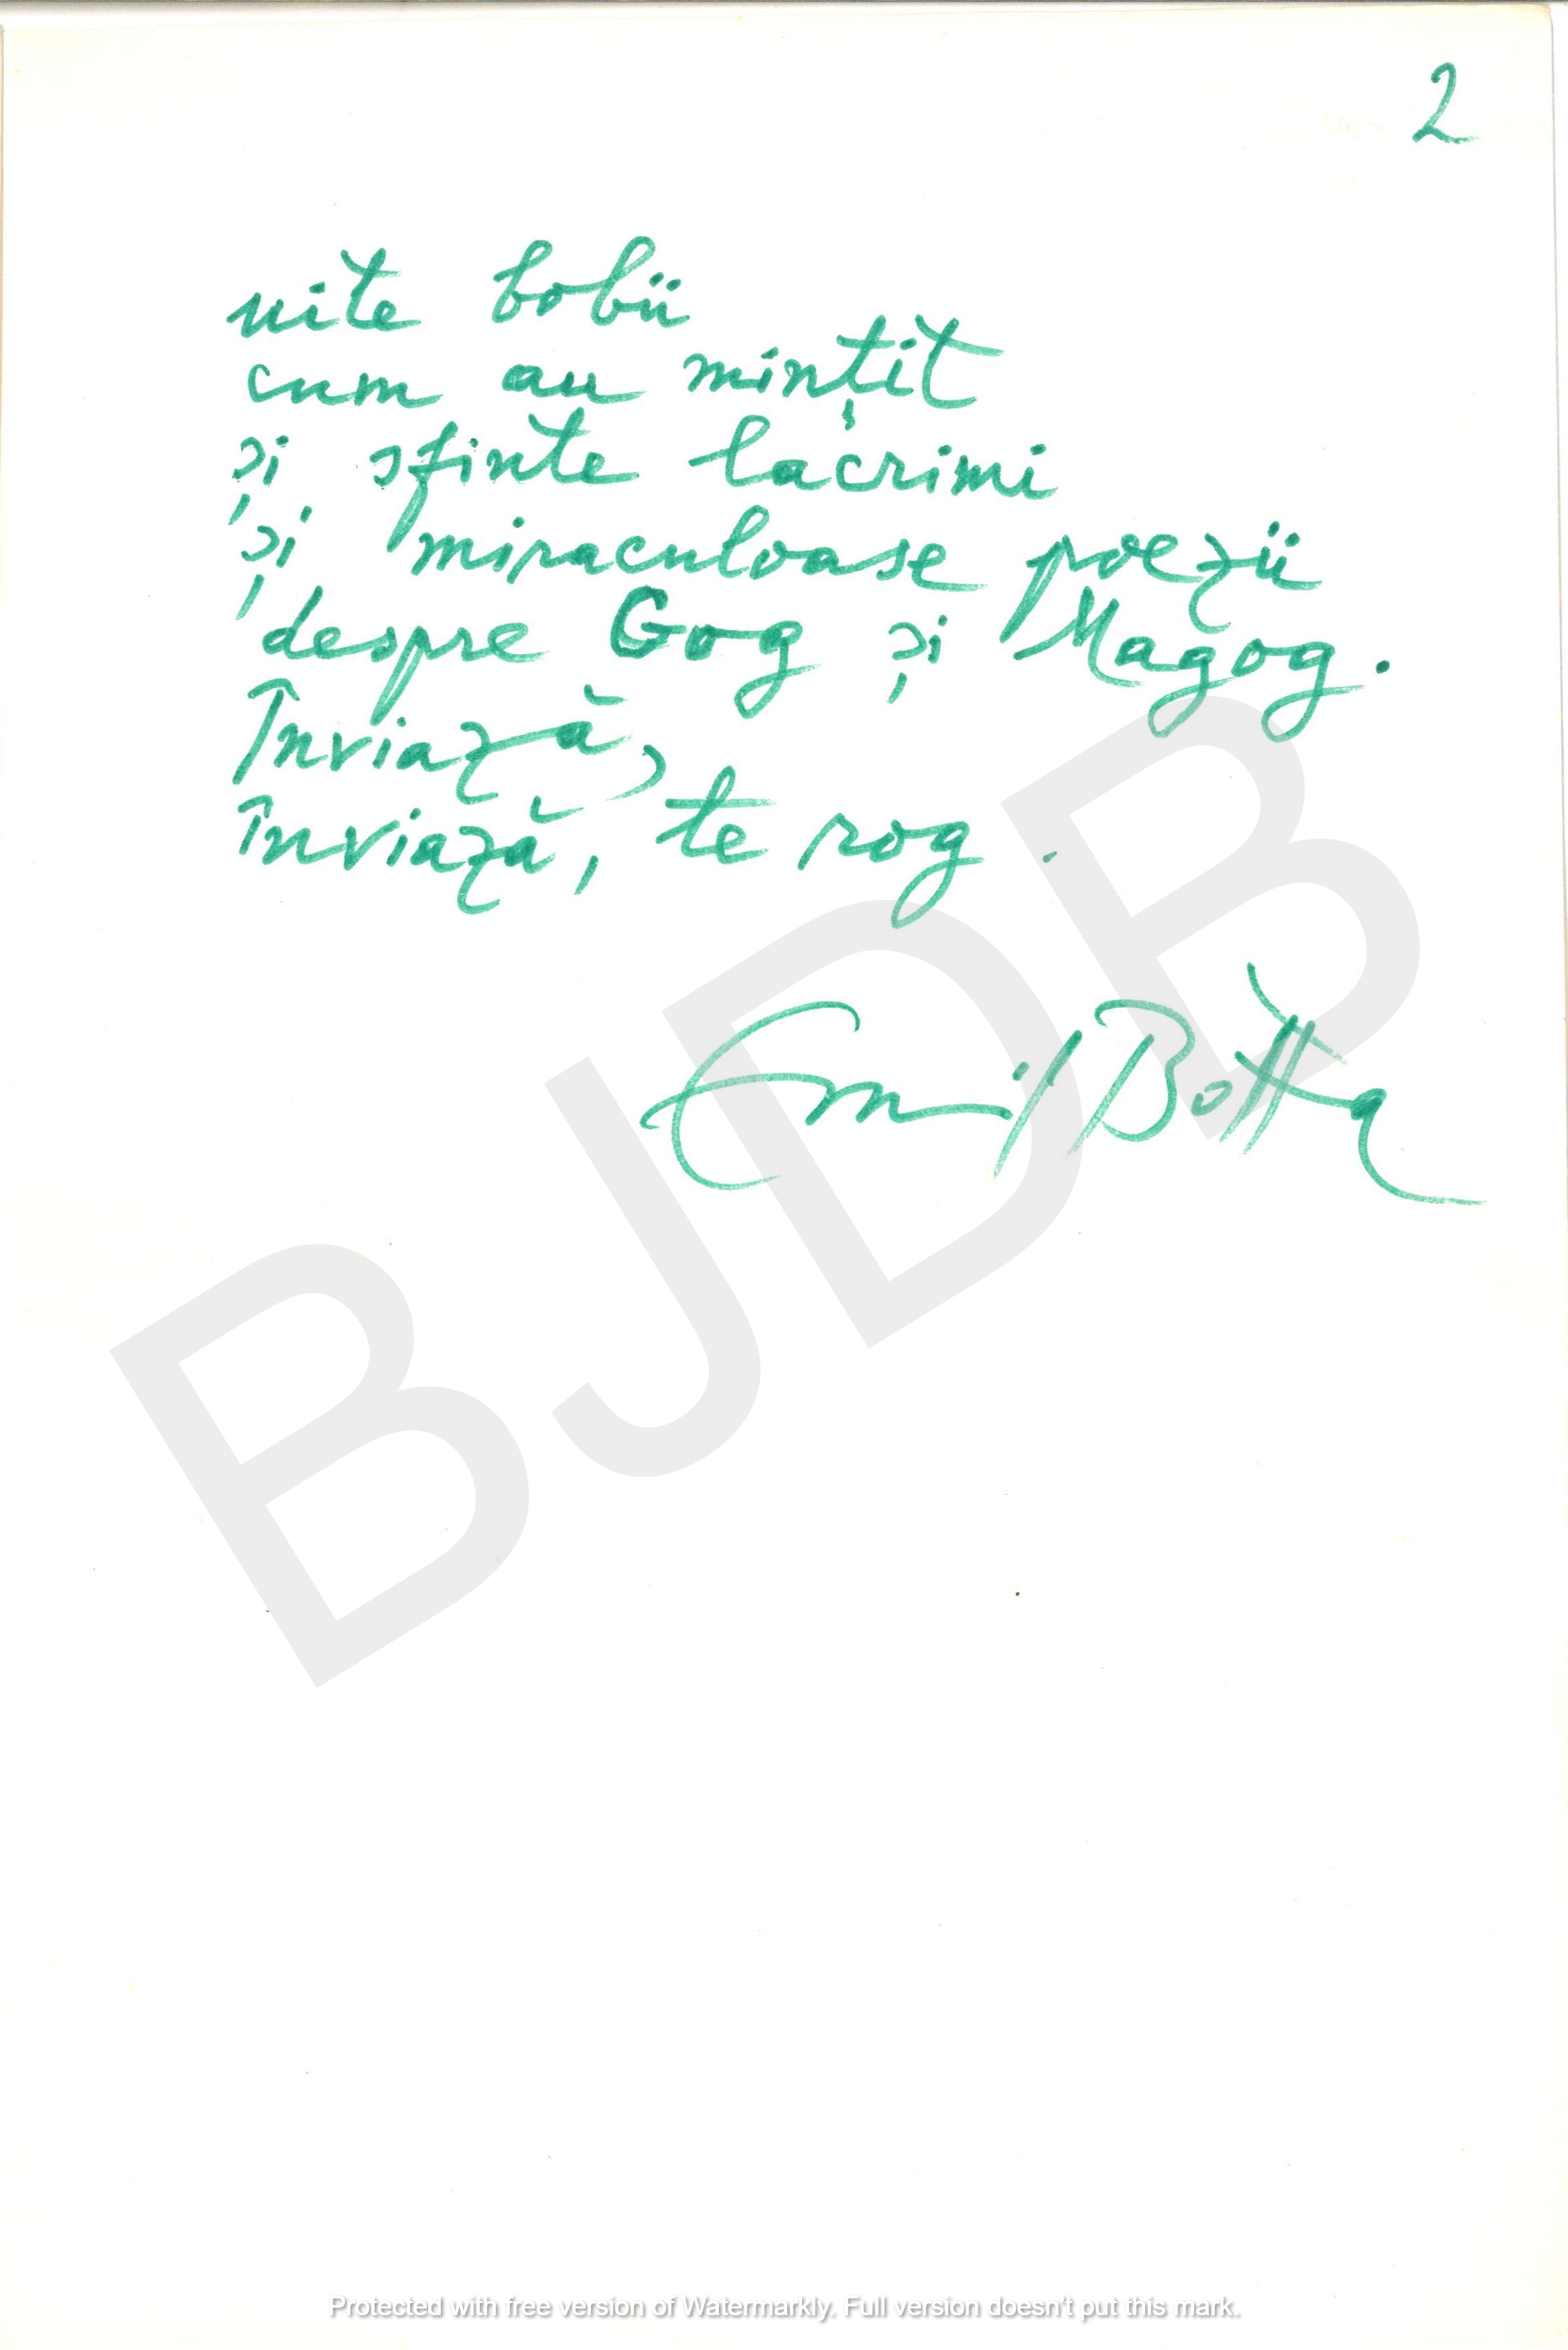 2
uite bobii
cum au minţit
și sfinte lacrimi
și miraculoase poezii
despre Gog și Magog.
Înviază,
înviază, te rog.
Emil Botta
BJDB
Protected with free version of Watermarkly. Full version doesn't put this mark.